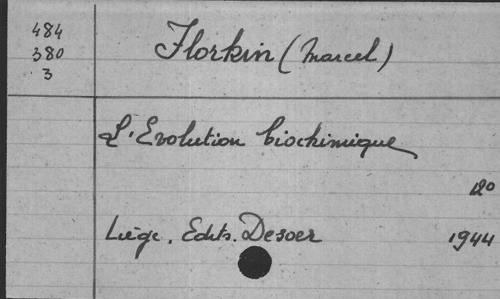 484
380
3
Florkin (Marcel)
L'Evolution biochimique
12°
Liège. Edits. Desoer 1944